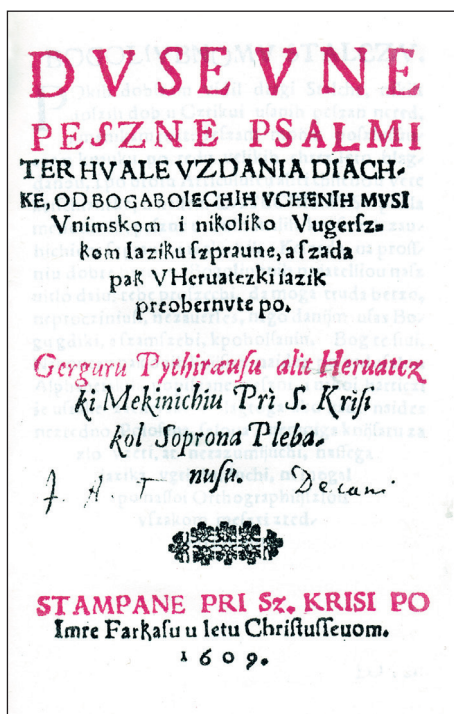 DVSEVNE
PESZNE PSALMI
TER HVALE VZDANIA DIACH-
KE, OD BOGABOIECHIH VCHENIH MVSI
Vnimskom i nikoliko Vugersz-
kom Iaziku szpraune, a szada
pak V Heruatczki iazik
preobernute po.
Gerguru Pythiræusu alit Heruatcz
ki Mekinichiu Pri S. Krisi
kol Soprona Pleba.
nusu.
STAMPANE PRI Sz. KRISI PO
Imre Farkasu u letu Christusseuom.
1609.